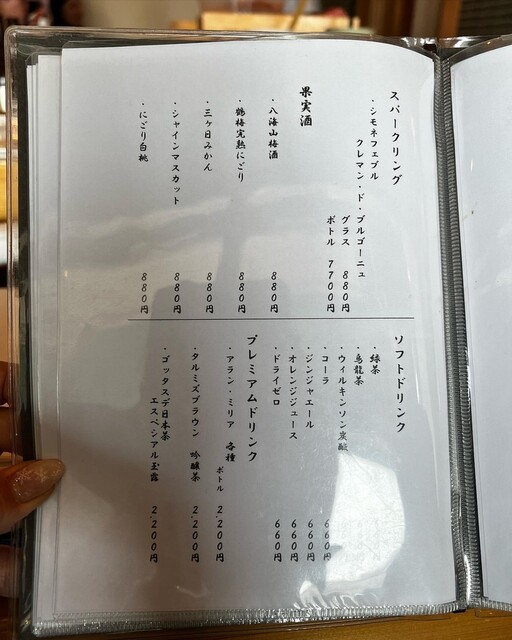 スパークリング
・シモネフェブル
クレマン・ド・ブルゴーニュ
グラス 880円
ボトル 7700円
果実酒
・八海山梅酒 880円
・鶴梅完熟にごり 880円
・三ヶ日みかん 880円
・シャインマスカット 880円
・にごり白桃 880円
ソフトドリンク
・緑茶
・烏龍茶
・ウィルキンソン炭酸
・コーラ 660円
・ジンジャエール 660円
・オレンジジュース 660円
・ドライゼロ 660円
プレミアムドリンク
・アラン・ミリア 各種 ボトル 2,200円
・タルミズブラウン 吟醸茶 2,200円
・ゴッタスデ日本茶
エスペシアル玉露 2,200円